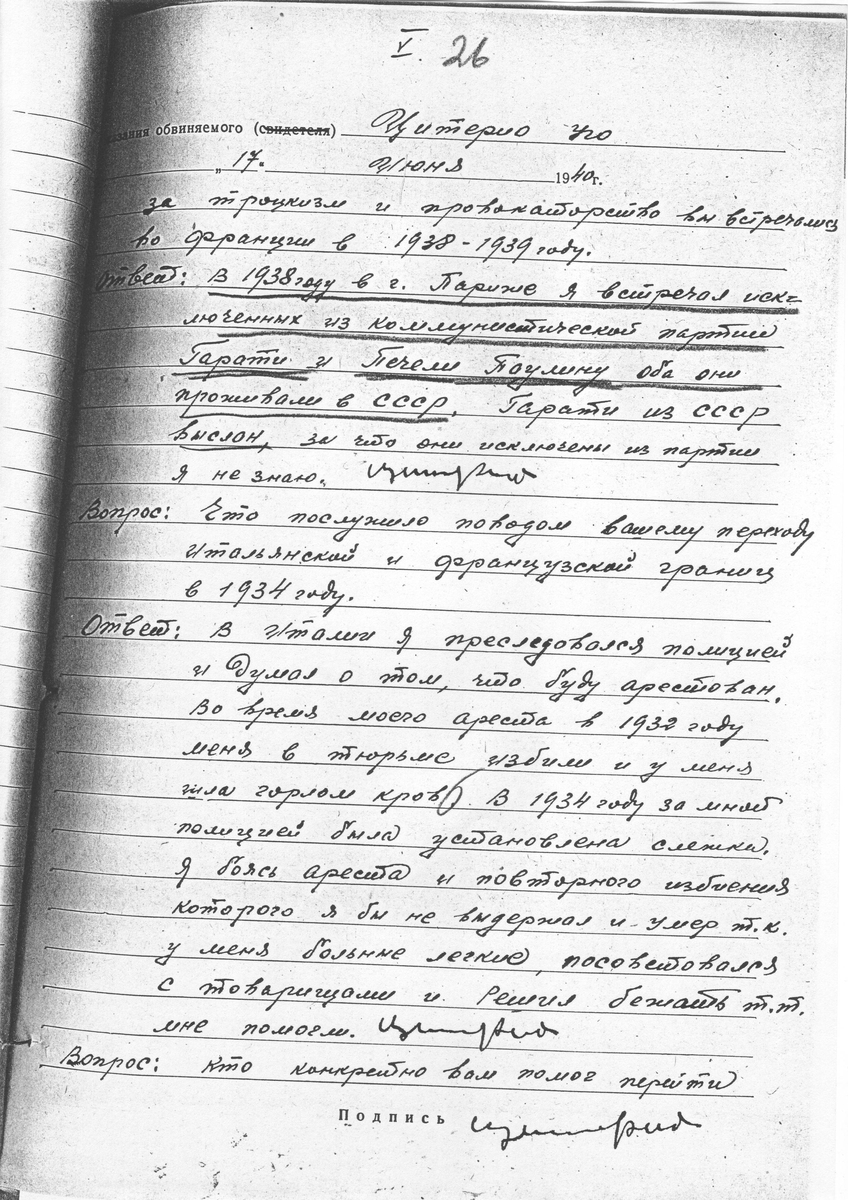 V. 26
зания обвиняемого (свидетеля) Цитерио Уго
„17" Июня 1940 г.
за троцкизм и провокаторство вы встречались
во Франции в 1938-1939 году.
Ответ: В 1938 году в г. Париже я встречал иск-
люченных из коммунистической партии
Гарати и Печели Паулину оба они
проживали в СССР. Гарати из СССР
выслан, за что они исключены из партии
я не знаю.
Вопрос: Что послужило поводом вашему переходу
Итальянской и французской границ
в 1934 году.
Ответ: В Италии я преследовался полицией
и думал о том, что буду арестован.
Во время моего ареста в 1932 году
меня в тюрьме избили и у меня
шла горлом кровь. В 1934 году за мной
полицией была установлена слежка.
Я боясь ареста и повторного избиения
которого я бы не выдержал и умер т.к.
у меня больные легкие, посоветовался
с товарищами и решил бежать т.т.
мне помогли.
Вопрос: Кто конкретно вам помог перейти
Подпись